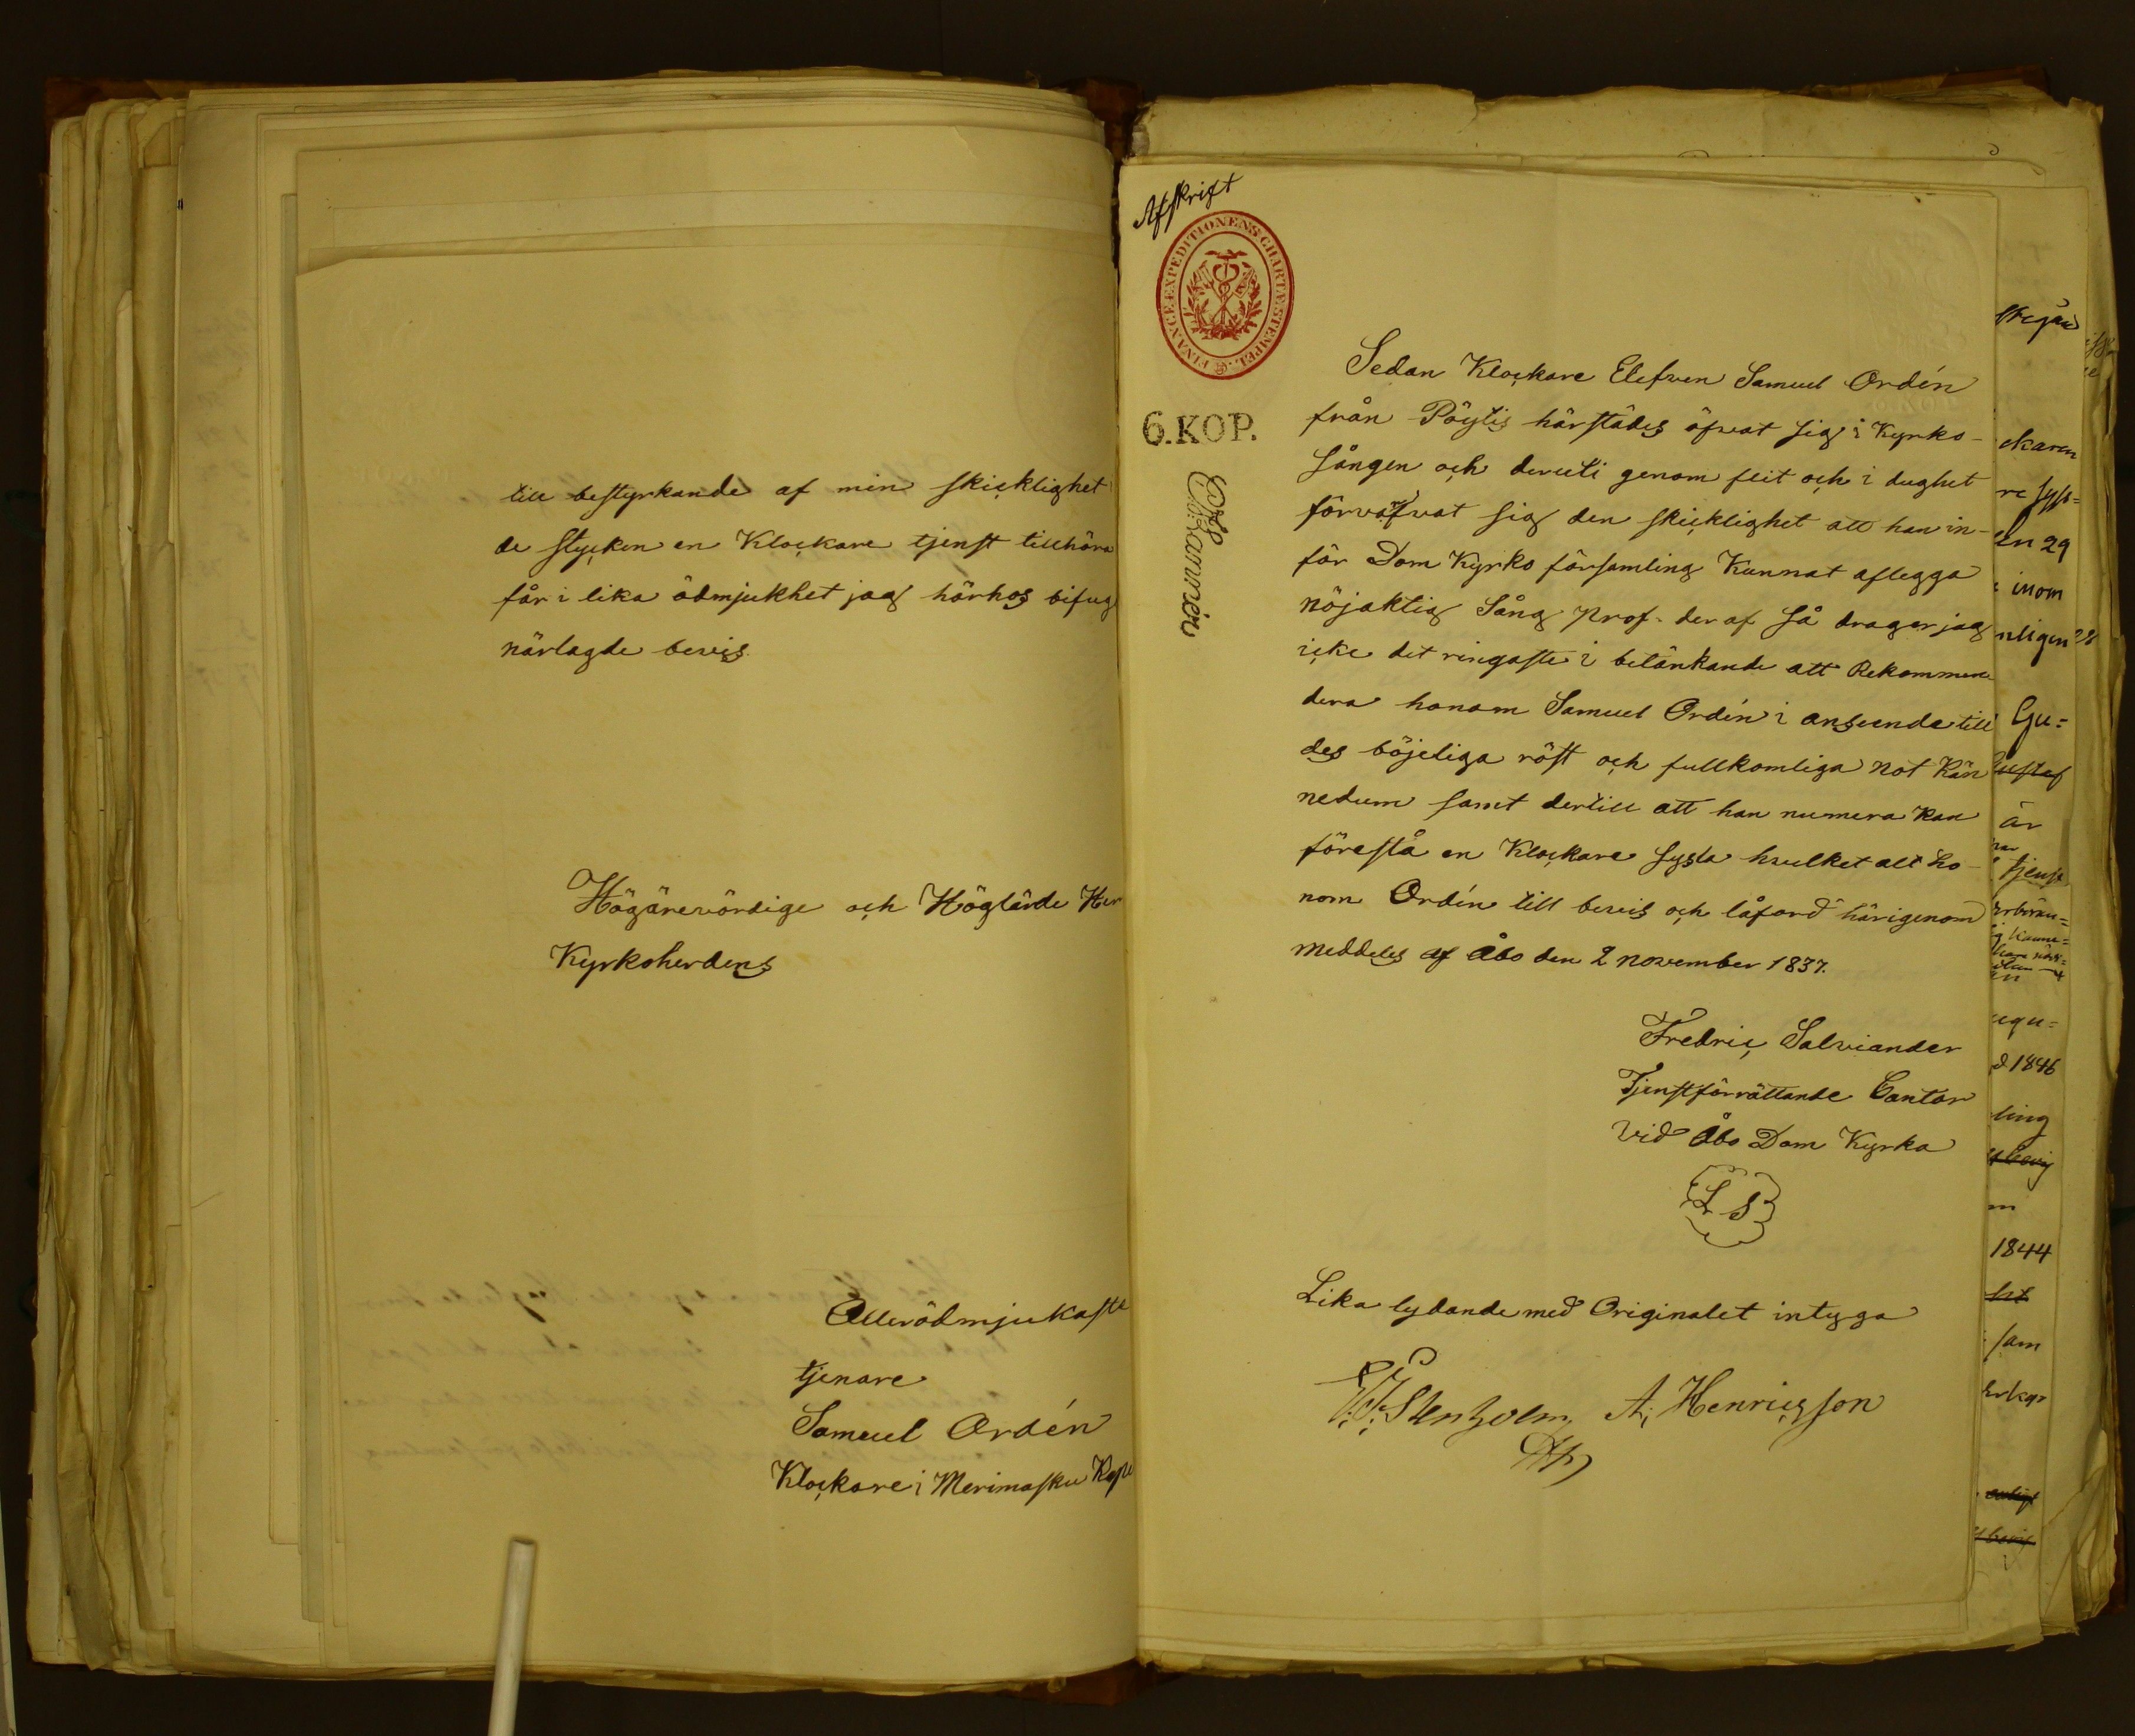 till bestyrkande af min skicklighet
de stycken en Klockare tjenst tillhöra
får i lika ödmjukhet jag härhos bifug
närlagde bevis.
Högärevördige och Höglärde Her
Kyrkoherdens
Allerödmjukaste
tjenare
Samuel Ordén
Klockare i Merimasku Kape
Afskrift
FINANCE EXPEDITIONENS CHARTÆ STEMPEL
6. KOP.
Sedan Klockare Elefven Samuel Ordén
från Pöytis härstädes öfvat sig i Kyrko-
sången och deruti genom flit och i dughet
förvärfvat sig den skicklighet att han in-
för Dom Kyrko församling Kunnat aflegga
nöjaktig Sång prof. deraf så drager jag
icke det ringaste i betänkande att Rekommen
dera honom Samuel Ordén i anseende till
des böjeliga röst och fullkomliga not Kän
nedum samt dertill att han numera Kan
förestå en Klockare sysla hvilket allt ho-
nom Ordén till bevis och låford härigenom
meddeles af Åbo den 2 november 1837.
Fredric Salviander
Tjenstförrättande Cantor
vid Åbo Dom Kyrka
L S
Lika lydande med Originalet intyga
A; Henricsson
ckaren
re sys=
en 29
inom
nligen
Gu=
ustaf
är
tjenst
d 1846
ling
1844
sam